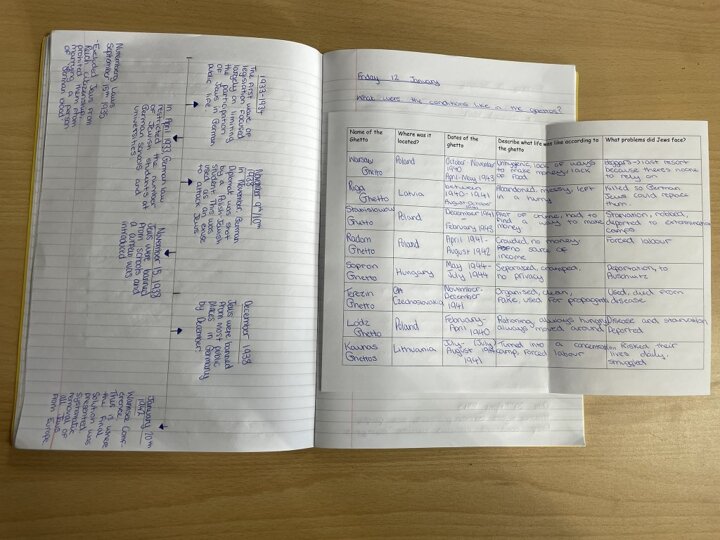 1933-1934
The first wave of
legislation focused
largely on limiting
the participation
of Jews in German
public life
November 9th/10th
1938
In November, German
Diplomat was shot
by a Polish-Jewish
student. This was
used as an excuse
to attack Jews
December 1938
Jews were banned
from most public
places in Germany
by December
January 20th
1942
Wannsee Conf-
erence
This is where
the Final
Solution was
presented
systematic
removal of
all Jews
from Europe
Nuremberg Laws
September 15th 1935
-Excluded Jews from
Reich citizenship,
prohibited them from
marrying a person
of German blood
In April 1933 German law
restricted the number
of Jewish students at
German schools and
universities
November 15, 1938
Jews were banned
from schools and
a curfew was
introduced
Friday 12 January
What were the conditions like in the ghettos?
Name of the Ghetto
Where was it located?
Dates of the ghetto
Describe what life was like according to
What problems did Jews face?
Warsaw Ghetto
Poland
October-November 1940
April-May 1943
Unhygienic, lack of ways
to make money, lack
of food
Beggars → last resort
because theres noone
to rely on
Riga Ghetto
Latvia
between
1940-1941
Abandoned, messy, left
in a hurry
Killed so German
Jews could replace
them
Stanislawow Ghetto
Poland
December 1941
-
February 1943
Plot of crime, had to
find a way to make
money
Starvation, robbed,
deported to extermination
camps
Radom Ghetto
Poland
April 1941-
August 1942
Crowded, no money
no source of
income
Forced labour
Sopron Ghetto
Hungary
May 1944-
July 1944
Separated, cramped,
no privacy
Deportation, to
Auschwitz
Terezin Ghetto
Czechoslovakia
November-
December
1941
Organised, clean,
Fake, used for propaganda
Used, died from
disease
Lodz Ghetto
Poland
February-
April 1940
Rationing, always hungry
always moved around
Disease and starvation
Deported
Kaunas Ghettos
Lithuania
July-
August
1941
Turned into a concentration
camp, Forced labour
Risked their
lives daily,
smuggled